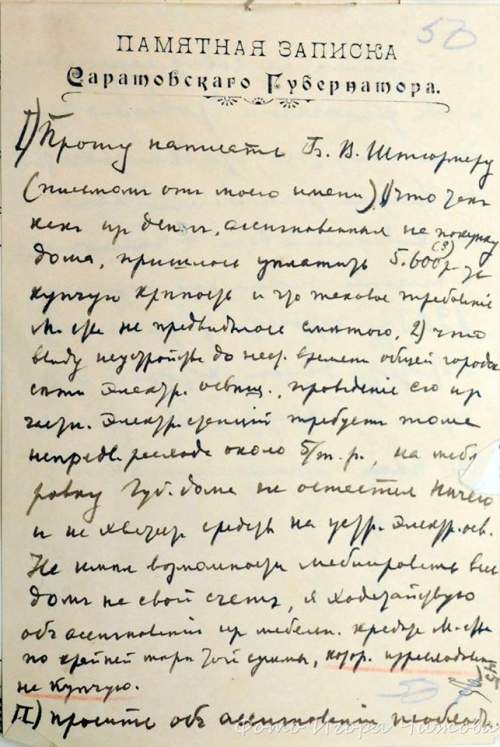 53
ПАМЯТНАЯ ЗАПИСКА
Саратовскаго Губернатора.
I) Прошу написать Б. В. Штюрмеру
(письмомъ отъ моего имени) 1) что такъ
какъ изъ денегъ, ассигнованныхъ на покупку
дома, пришлось уплатить 5.600 р. за
(?)
купчую крѣпость и что таковое требованіе
не предвидѣлось смѣтою, 2) что
ввиду неустройства до наст. времени общей городск.
сѣти электр. освѣщ., проведеніе его изъ
частн. электр. станцій требуетъ тоже
непредв. расхода около 5/т. р., на мебли
ровку Губ. дома не остается ничего
и не хватитъ средствъ на устр. электр. осв.
Не имѣя возможности меблировать весь
домъ на свой счетъ, я ходатайствую
объ ассигнованіи изъ мебельн. кредита
по крайней мѣрѣ той суммы, котор. израсходована
на купчую.
53
II) просить объ ассигнованіи необход.
Фото Игоря Титова